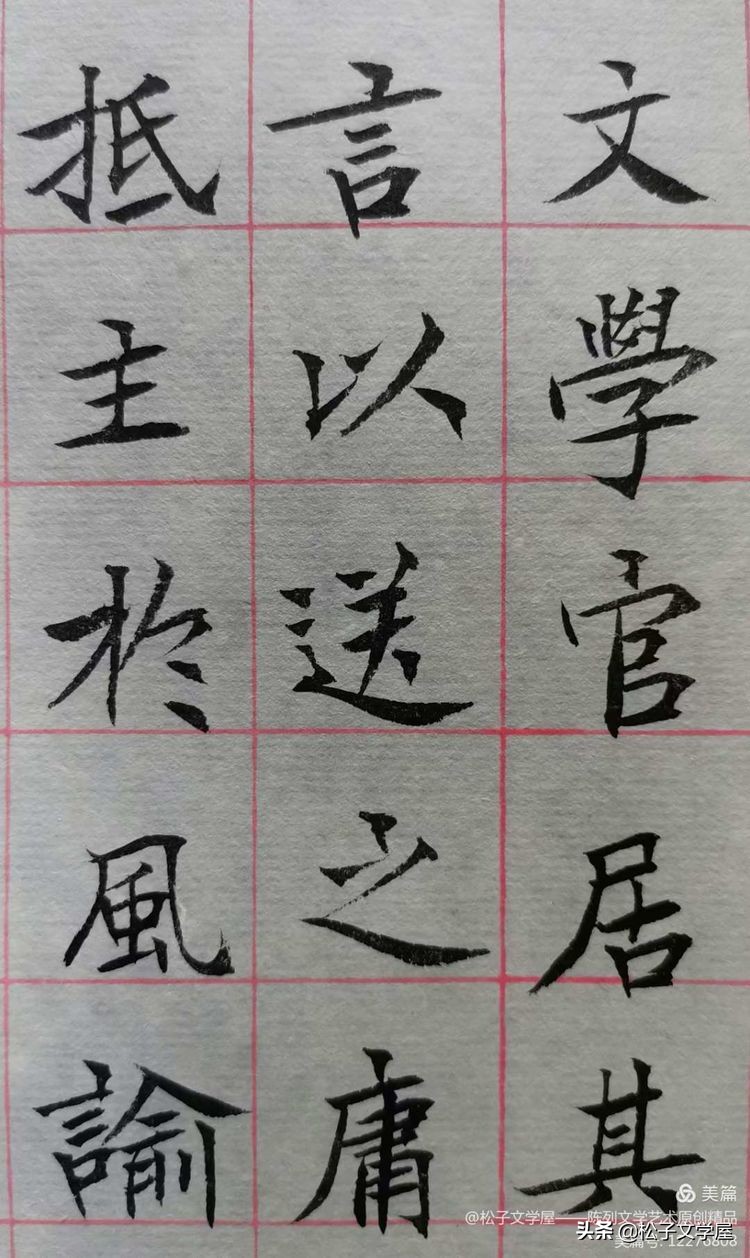 文學官居其
言以送之庸
抵主於風諭
美篇
@松子文学屋——陈列文学艺术原创精品
头条 @松子文学屋